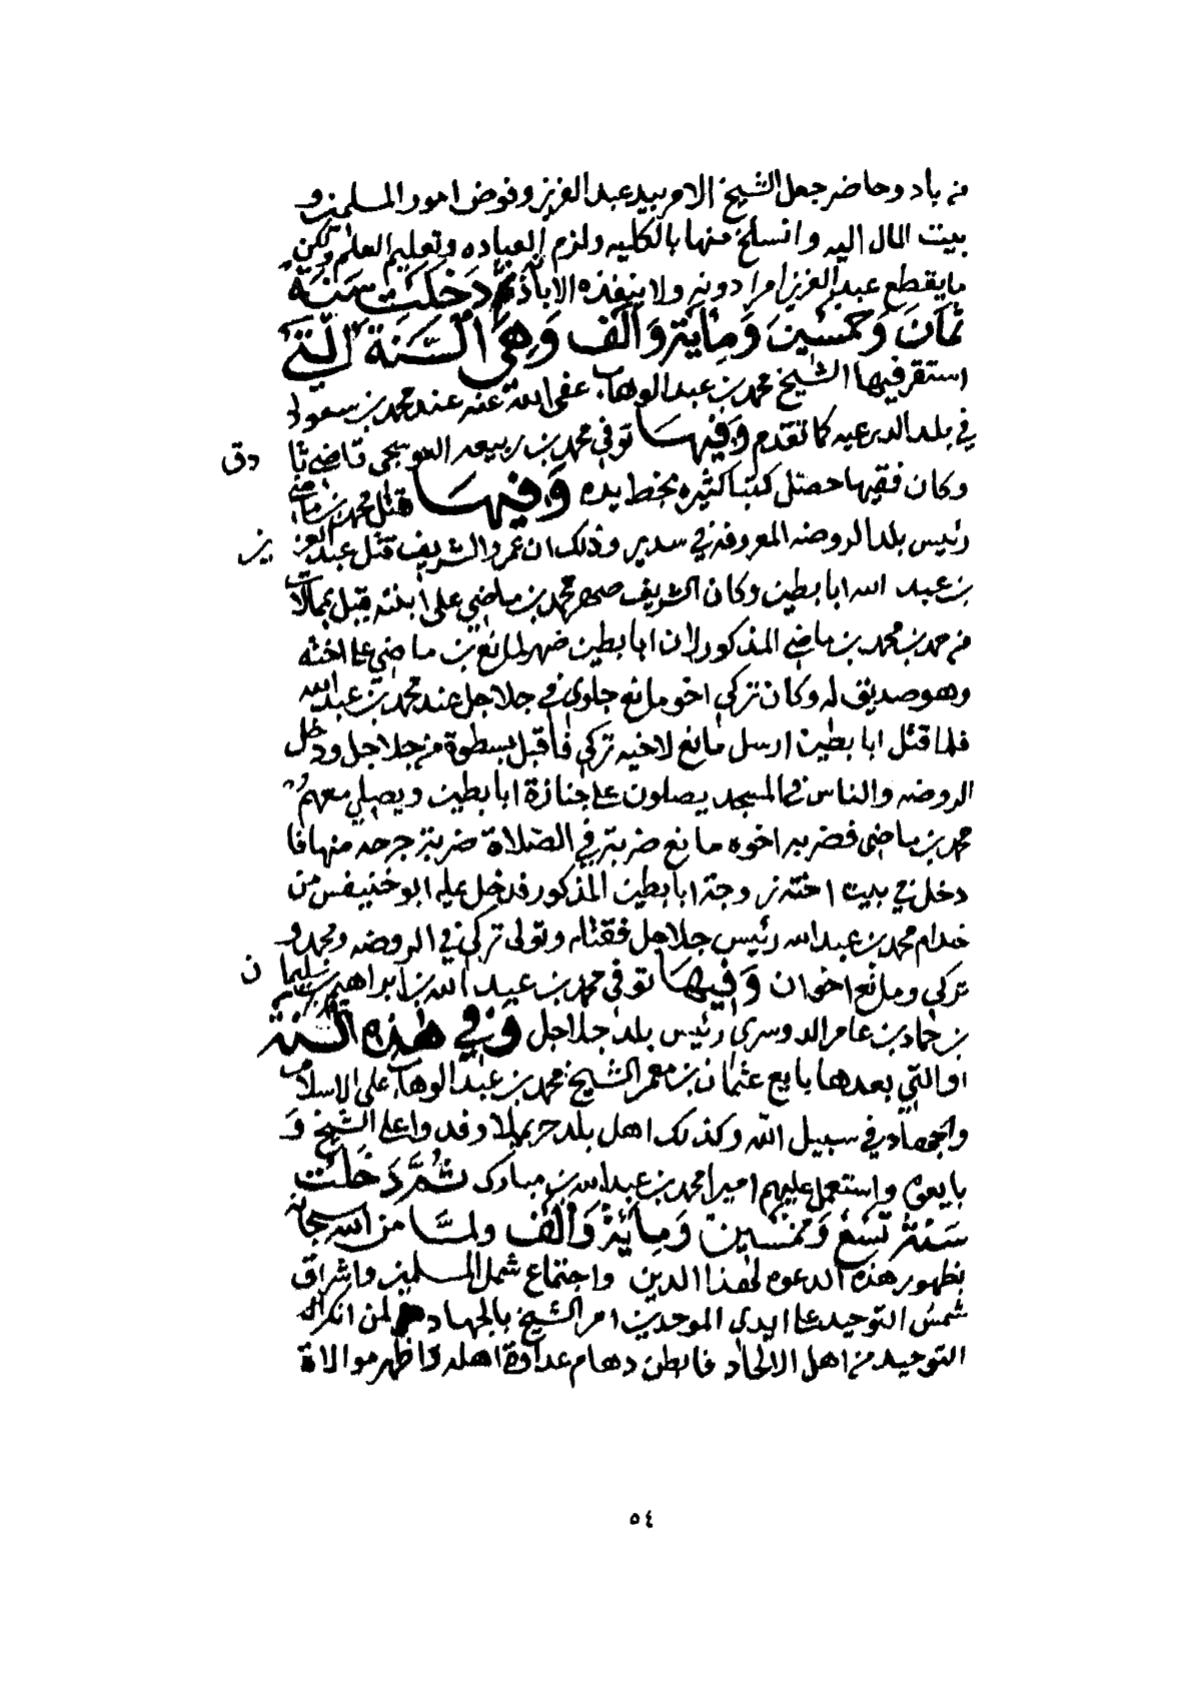 من باد وحاضر جعل الشيخ الامر بيد عبد العزيز وفوض امور المسلمين و
بيت المال اليه وانسلخ منها بالكليه ولزم العباده وتعليم العلم ولكن
ما يقطع عبد العزيز امرا دونه ولا ينفذه الا باذنه ثم دخلت سنة
ثمان وخمسين وماية والف وهي السنة التي
استقر فيها الشيخ محمد بن عبد الوهاب عفى الله عنه عند محمد بن سعود
في بلد الدرعيه كما تقدم وفيها توفي محمد بن ربيعه العوسجي قاضي ثادق
وكان فقيها حصل كتبا كثيره بخط يده وفيها قتل محمد بن ماضي
رئيس بلد الروضه المعروفة في سدير وذلك ان عمر والشريف قتل عبد العزيز
بن عبد الله ابا بطين وكان الشريف صهر محمد بن ماضي على ابنته قيل بممالات
من محمد بن محمد بن ماضي المذكور لان ابا بطين ضهر لمانع بن ماضي على اخته
وهو صديق له وكان تركي اخو مانع جلوي في جلاجل عند محمد بن عبد الله
فلما قتل ابا بطين ارسل مانع لاخيه تركي فاقبل بسطوة من جلاجل ودخل
الروضه والناس في المسجد يصلون على جنازة ابا بطين ويصلي معهم
محمد بن ماضي فضربه اخوه مانع ضربة في الصلاة ضربة جرحه منها فا
دخل في بيت اخته زوجة ابا بطين المذكور فدخل عليه ابو خنيفس من
خدام محمد بن عبد الله رئيس جلاجل فقتله وتولى تركي في الروضه ومحمد و
تركي ومانع اخوان وفيها توفي محمد بن عبد الله بن ابراهيم بن سليمان
بن حماد بن عامر الدوسري رئيس بلد جلاجل وفي هذه السنة
او التي بعدها بايع عثمان بن معمر الشيخ محمد بن عبد الوهاب على الاسلام
والجهاد في سبيل الله وكذلك اهل بلد حريملا وفدوا على الشيخ و
بايعوه واستعمل عليهم اميرا محمد بن عبد الله بن مبارك ثم دخلت
سنة تسع وخمسين ومائة والف ولما من الله سبحانه
بظهور هذه الدعوه لهذا الدين واجتماع شمل المسلمين واشراق
شمس التوحيد على ايدي الموحدين امر الشيخ بالجهاد لمن انكر
التوحيد من اهل الالحاد فابطن دهام عداوة اهله واظهر موالاة
٥٤